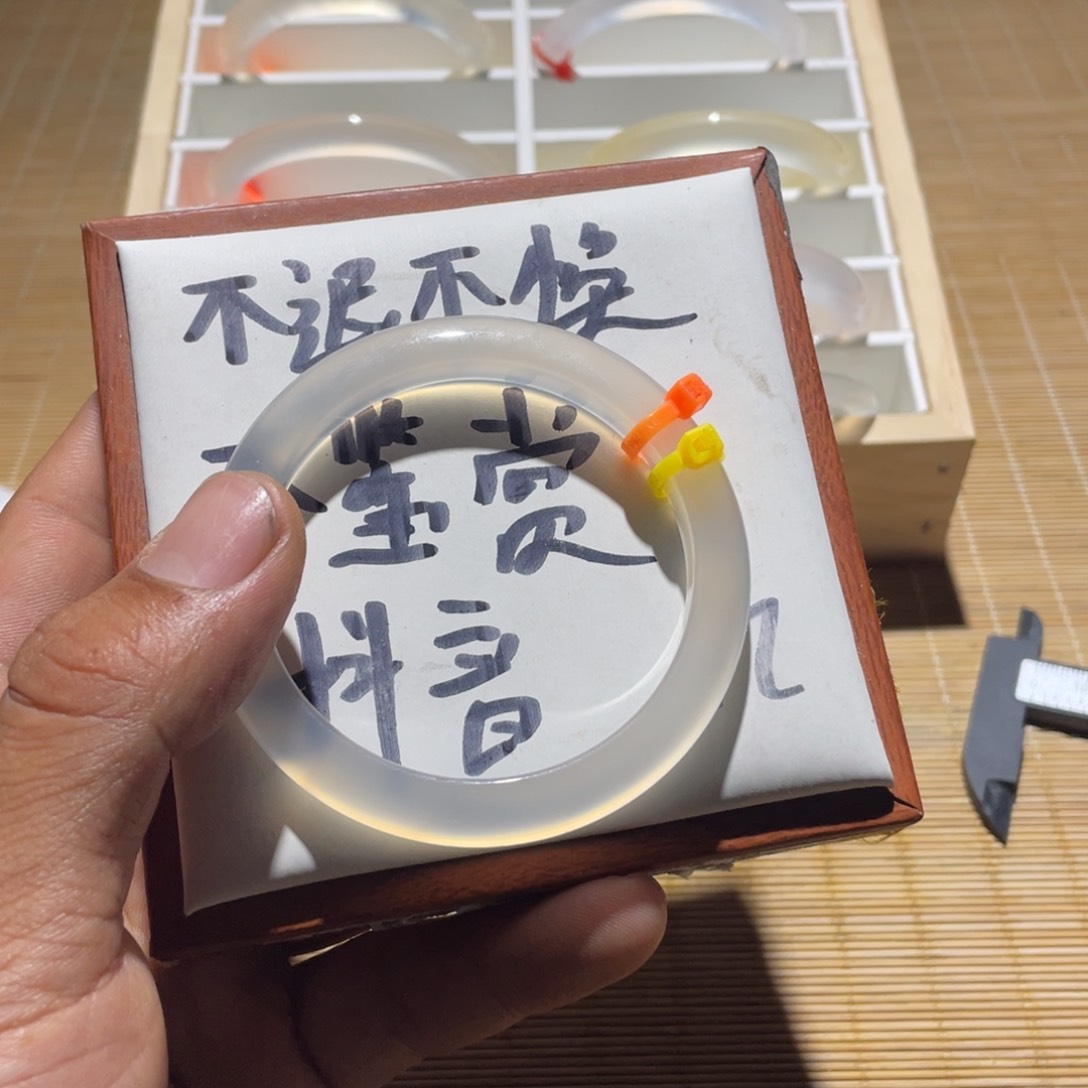 不退不换
不鉴赏
抖音